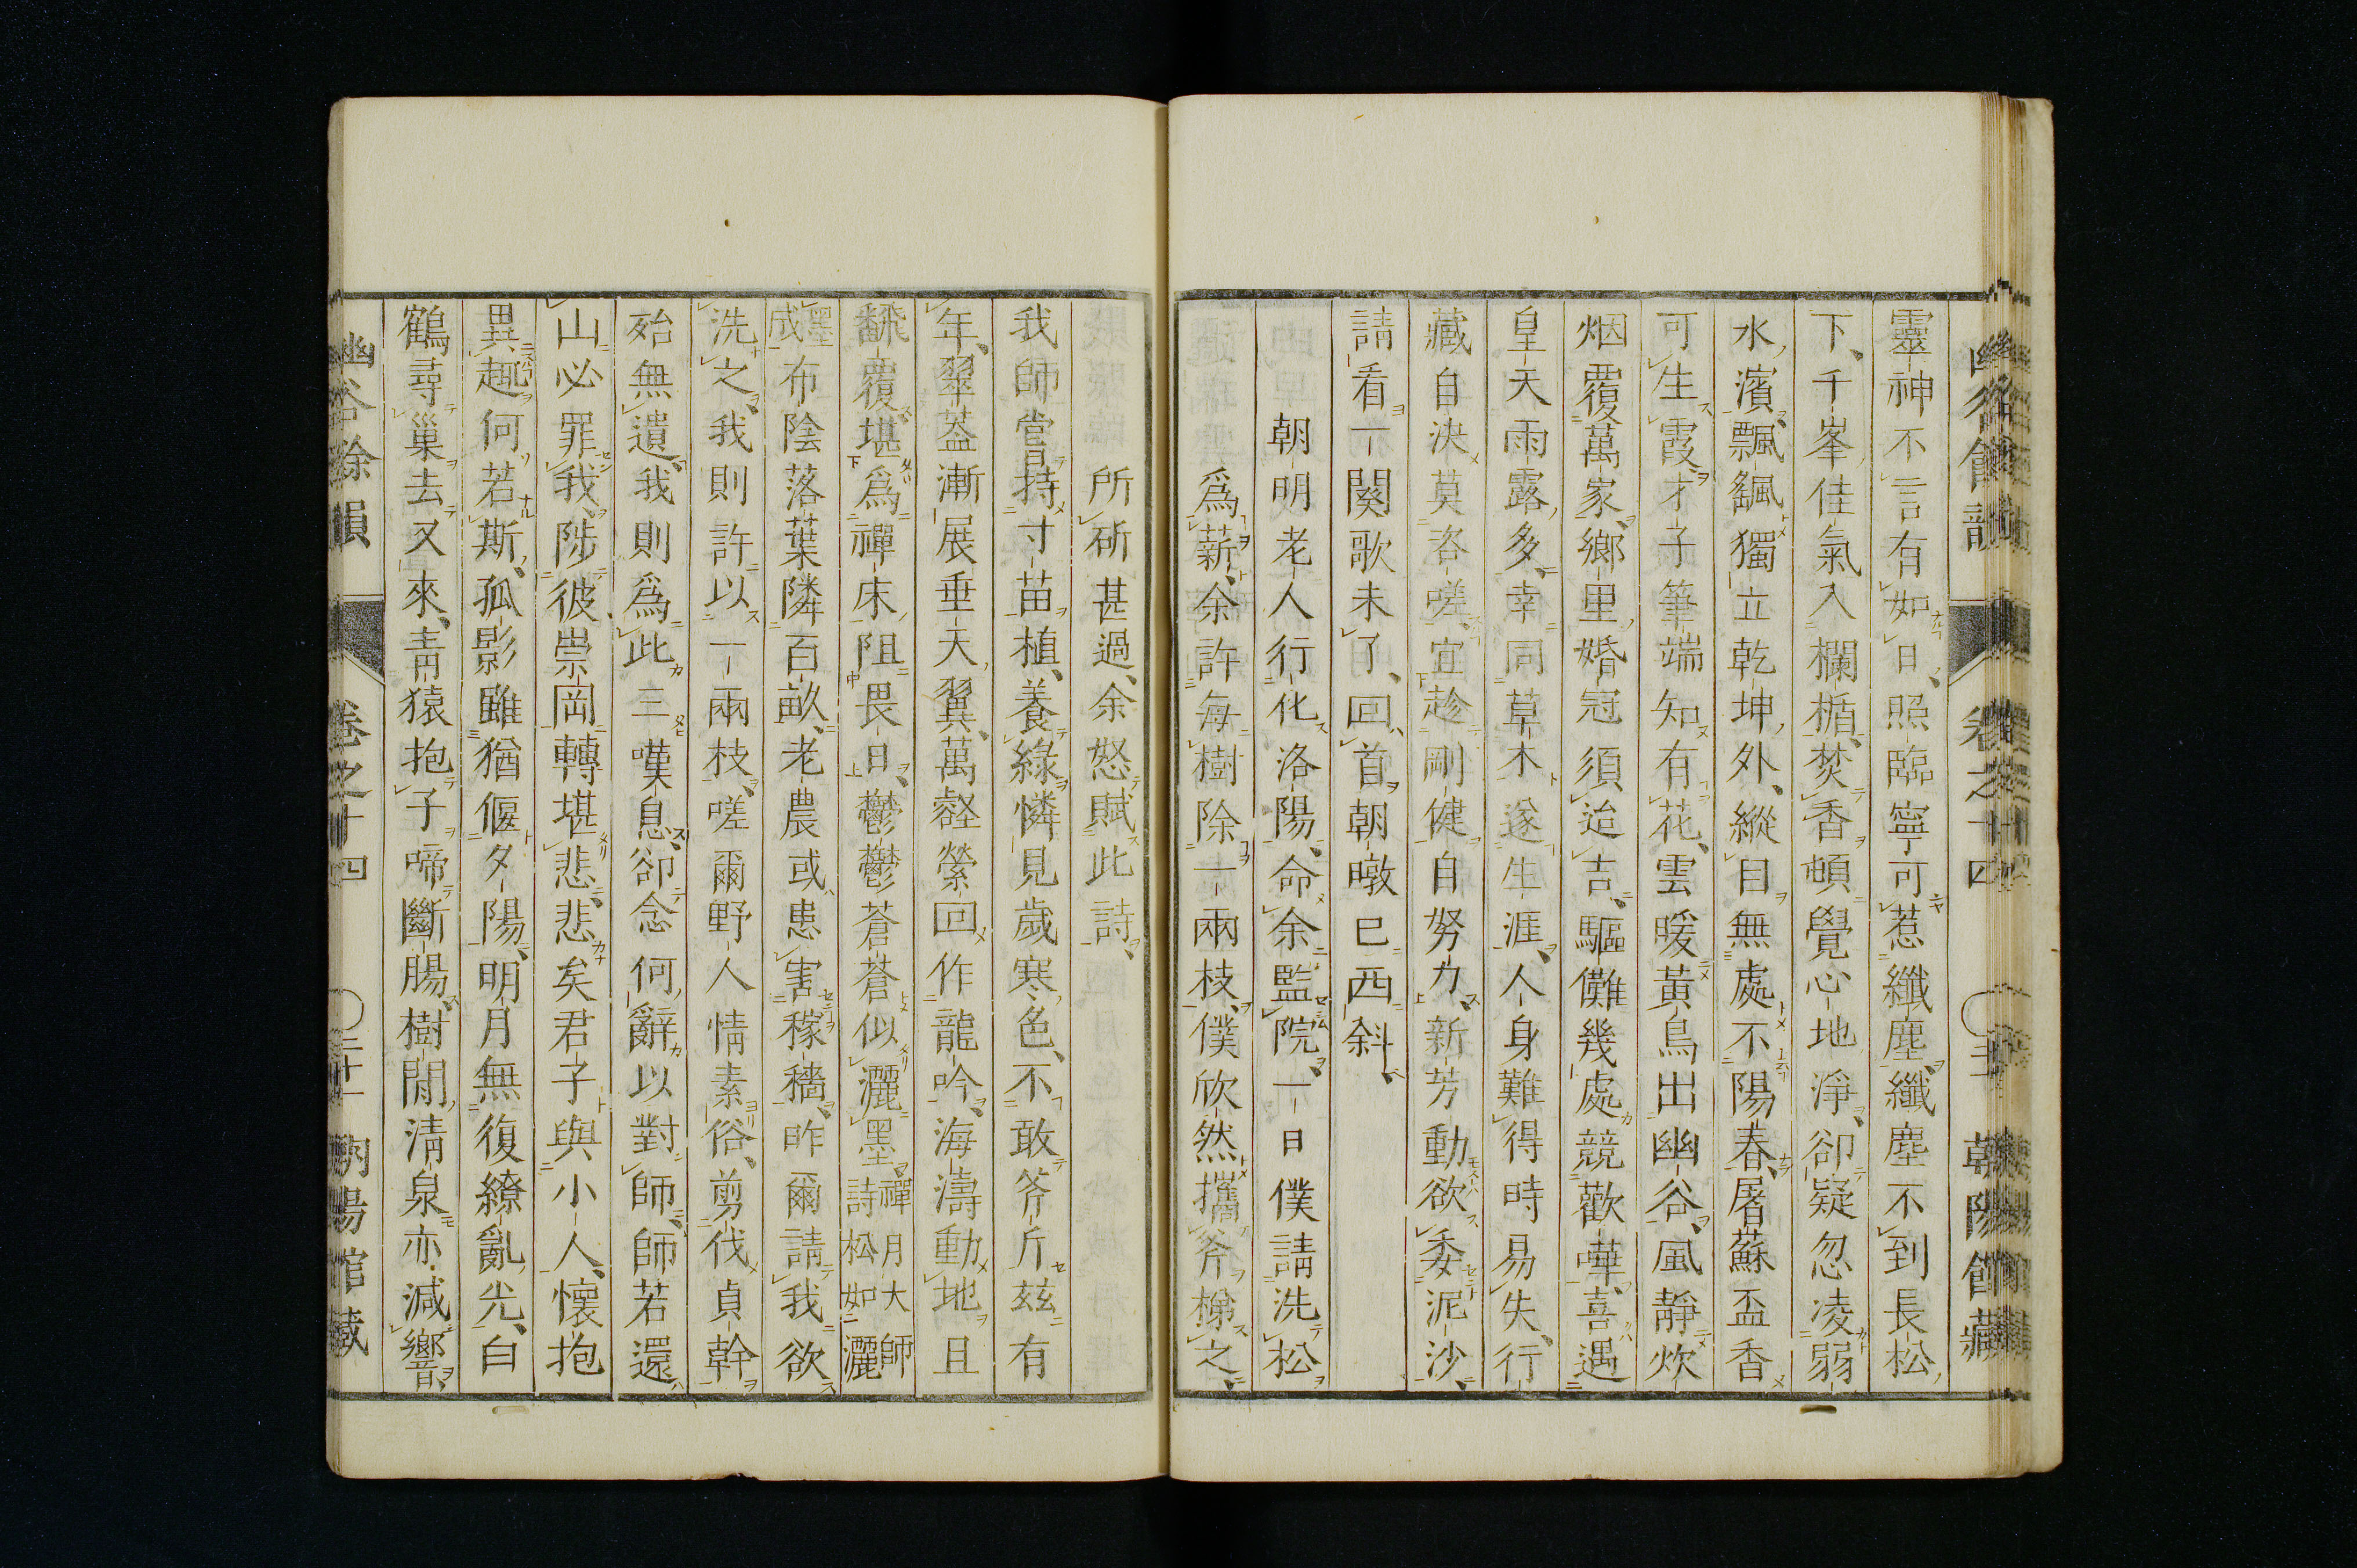 靈神不言有如日照臨寧可惹纖塵纖塵不到長松
下千峯佳氣入欄楯焚香頓覺心地淨卻疑忽凌弱
水濱飄颻獨立乾坤外縱目無處不陽春屠蘇盃香
可生霞才子筆端知有花雲暖黃鳥出幽谷風靜炊
烟覆萬家鄉里婚冠須迨吉驅儺幾處競歡嘩喜遇
皇天雨露多幸同草木遂生涯人身難得時易失行
藏自決莫咨嗟宜趁剛健自努力新芳動欲委泥沙
請看一闋歌未了回首朝暾已西斜
朝明老人行化洛陽命余監院一日僕請洗松
爲薪余許每樹除一兩枝僕欣然攜斧梯之
所斫甚過余怒賦此詩
我師嘗持寸苗植養綠憐見歲寒色不敢斧斤茲有
年翠葢漸展垂天翼萬壑縈回作龍吟海濤動地且
飜覆堪爲禪床阻畏日鬱鬱蒼蒼似灑墨禪月大師詩松如灑
墨成布陰落葉隣百畝老農或患害稼穡昨爾請我欲
洗之我則許以一兩枝嗟爾野人情素俗剪伐貞幹
殆無遺我則爲此三嘆息卻念何辭以對師師若還
山必罪我陟彼崇岡轉堪悲悲矣君子與小人懷抱
異趣何若斯孤影雖猶偃夕陽明月無復繚亂光白
鶴尋巢去又來靑猿抱子啼斷腸樹閒淸泉亦減響
幽谷餘韻 卷之十四 ○二十一 朝陽館藏